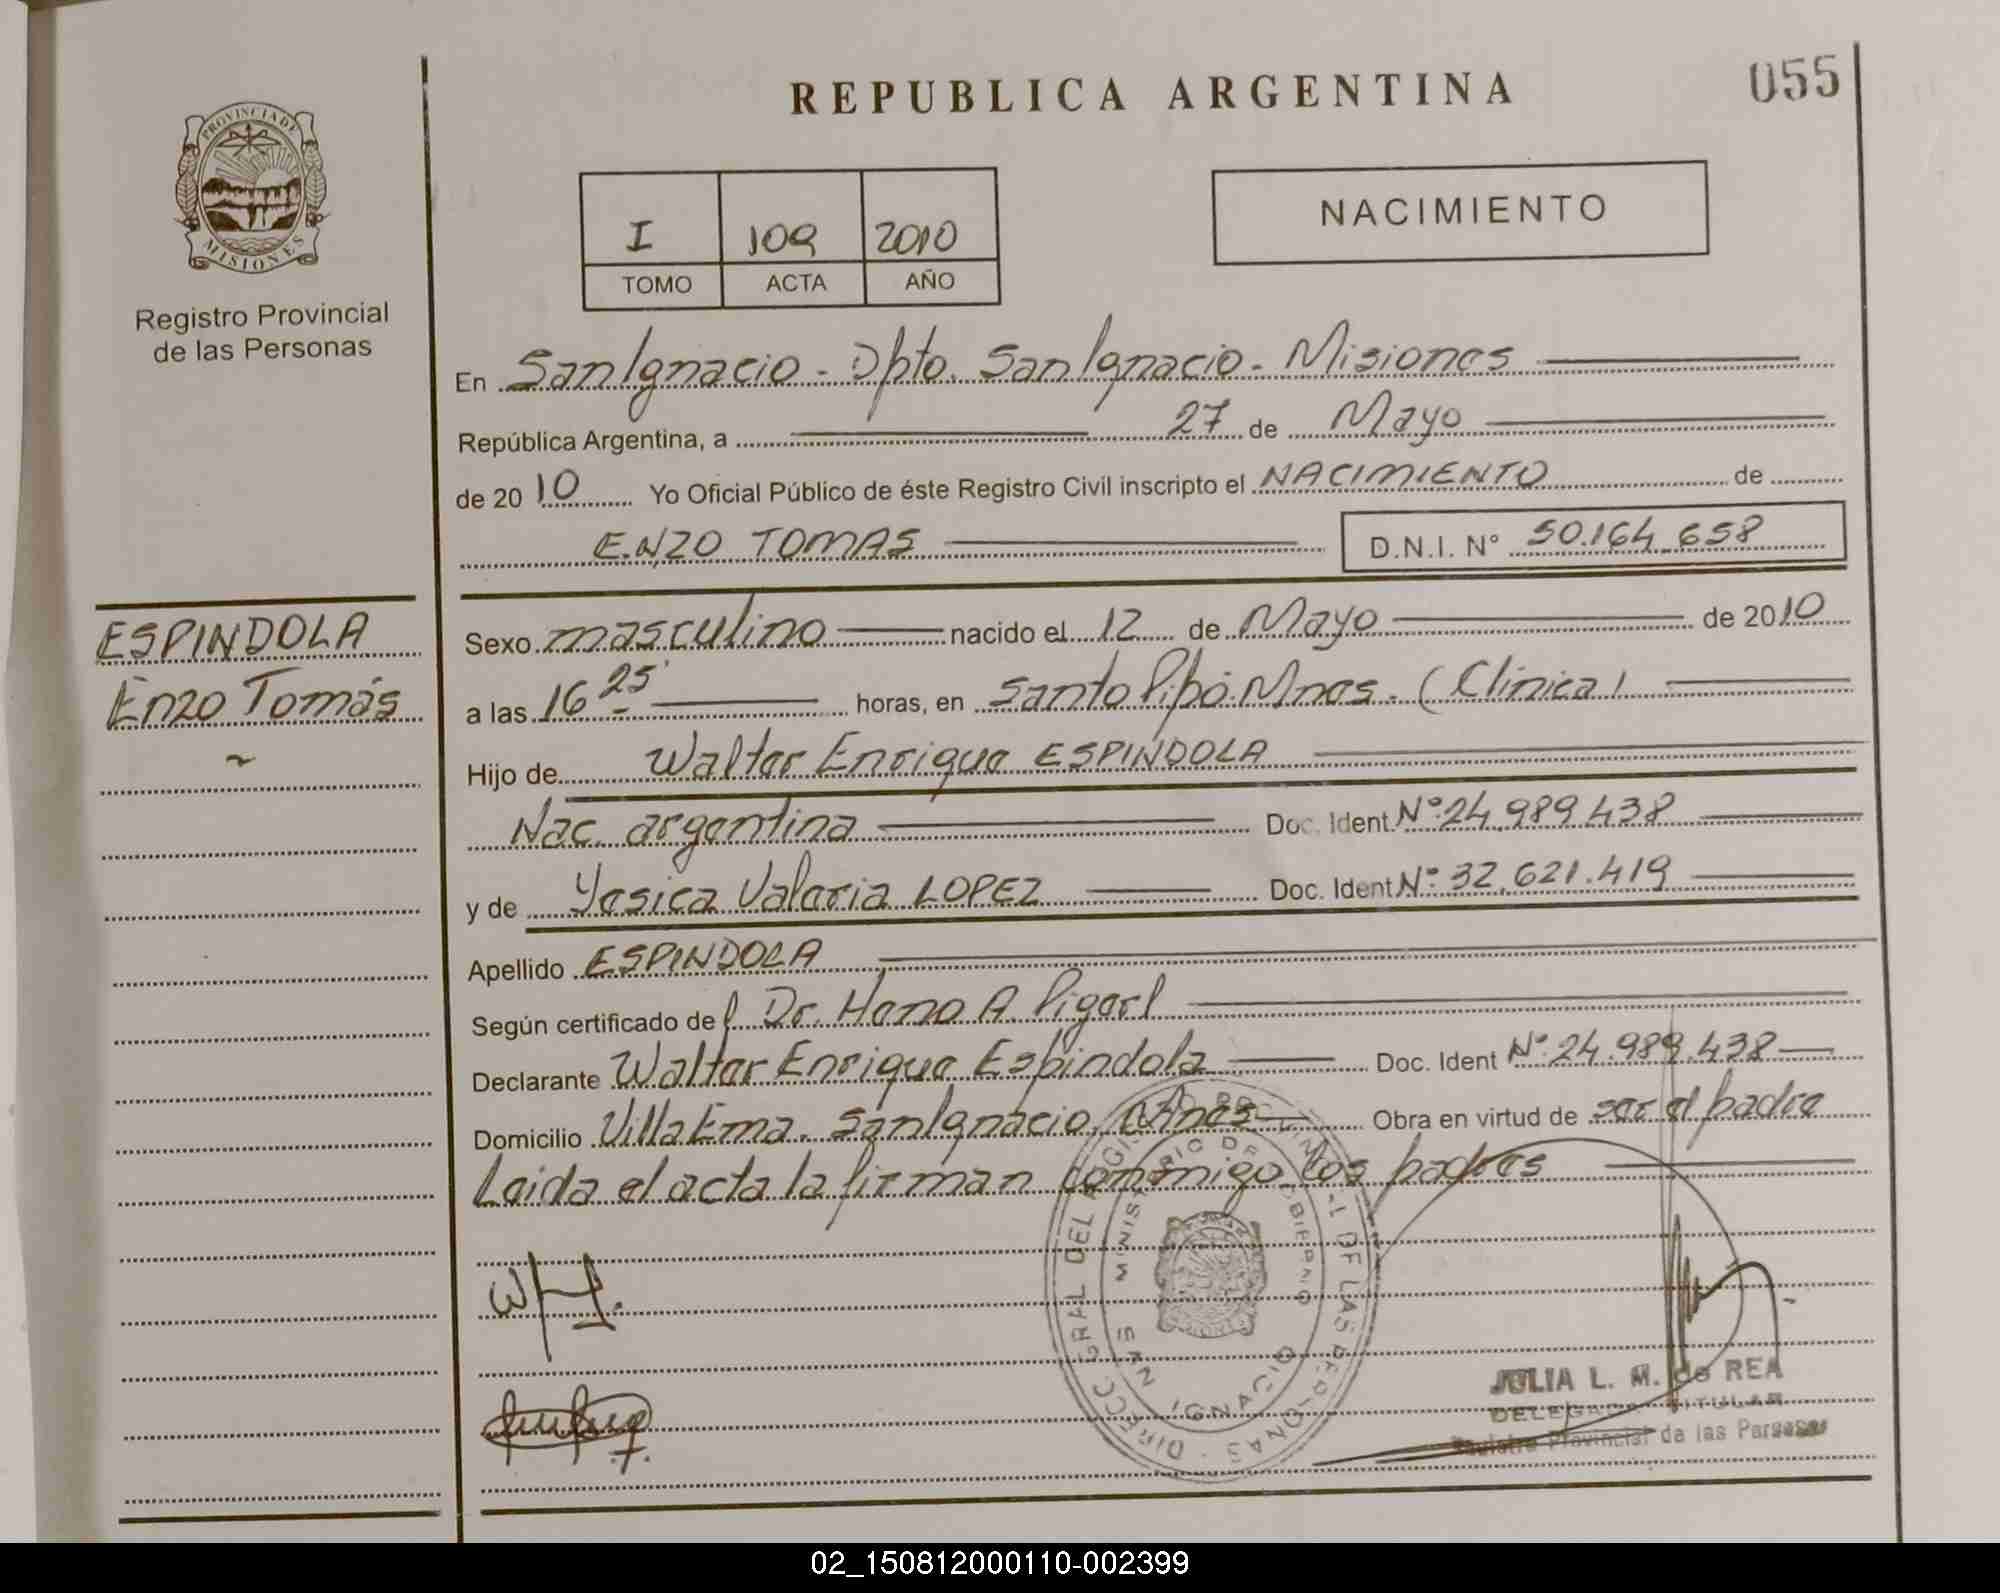 REPUBLICA ARGENTINA
055
PROVINCIA DE MISIONES
Registro Provincial
de las Personas
I 109 2010
TOMO ACTA AÑO
NACIMIENTO
En San Ignacio - Dpto. San Ignacio - Misiones
República Argentina, a 27 de Mayo
de 2010 Yo Oficial Público de éste Registro Civil inscripto el NACIMIENTO de
ENZO TOMAS D.N.I. N° 50.164.658
ESPINDOLA
Enzo Tomás
Sexo masculino nacido el 12 de Mayo de 2010
a las 16 25' horas, en Santo Pipó. Mnes. (Clínica)
Hijo de Walter Enrique ESPINDOLA
Nac. argentina Doc. Ident. N° 24.989.438
y de Yesica Valeria LOPEZ Doc. Ident. N° 32.621.419
Apellido ESPINDOLA
Según certificado del Dr. Hano A. Pigerl
Declarante Walter Enrique Espindola Doc. Ident N° 24.989.438
Domicilio Villa Ema. San Ignacio, Mnes Obra en virtud de ser el padre
Leida el acta la firman conmigo los padres
DIRECC. GRAL DEL REGISTRO PROVINCIAL DE LAS PERSONAS
MINISTERIO DE GOBIERNO
SAN IGNACIO
JULIA L. M. de REA
DELEGADA TITULAR
Registro Provincial de las Personas
02_150812000110-002399